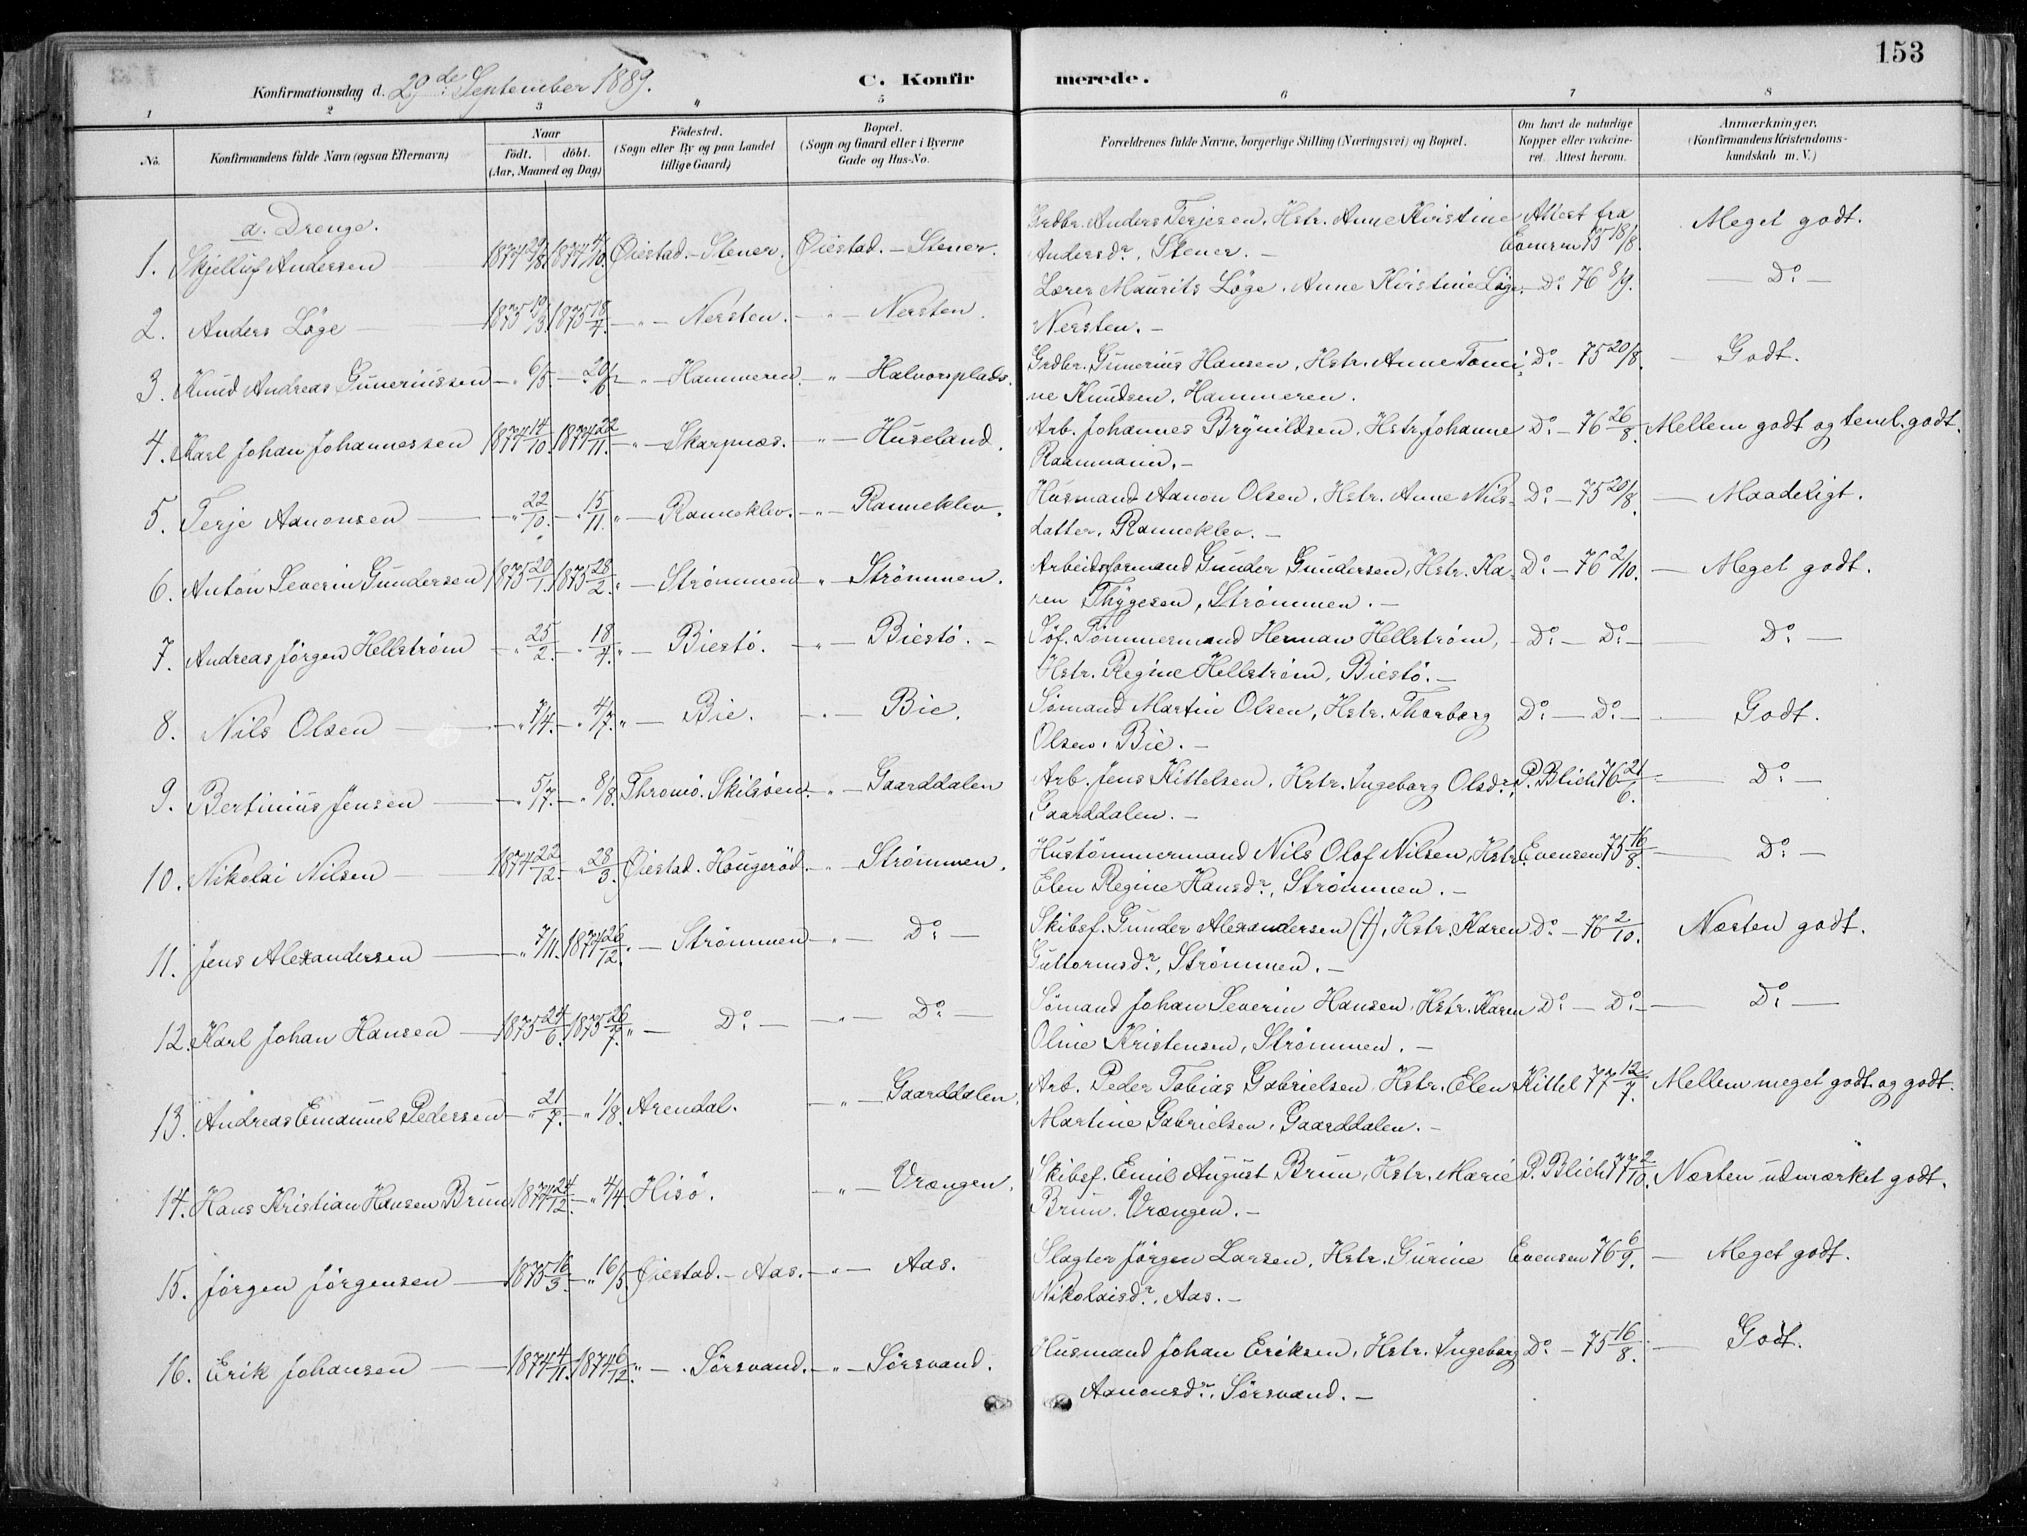 153
Konfirmationsdag d. 29de September 1889. C. Konfirmerede.
1 2 3 " 5 6 7 8
No. Konfirmandens fulde Navn (ogsaa Efternavn) Naar födt. döbt. (Aar, Maaned og Dag) Födested. (Sogn eller By og paa Landet tillige Gaard) Bopæl. (Sogn og Gaard eller i Byerne Gade og Hus-No. Forældrenes fulde Navne, borgerlige Stilling (Næringsvei) og Bopæl. Om havt de naturlige Kopper eller vakcineret. Attest herom. Anmærkninger. (Konfirmandens Kristendomskundskab m. V.)
a. Drenge.
1. Skjelluf Andersen 1874 29/8. 1874 4/10. Øiestad. – Stener. Øiestad. – Stener. Grdbr. Anders Terjesen, Hstr. Anne Kristine Attest fra Meget godt.
Andersdr, Stener. – 75 18/8.
2. Anders Løge 1875 19/3. 1875 18/4. – " – Nersten. – " – Nersten. Lærer Maurits Løge, Anne Kristine Løge, – Do 76 8/9. – Do –
Nersten. –
3. Knud Andreas Guneriussen – " 6/5. – " 20/6. – " – Hammeren. – " – Halvorsplads. Grdbr. Gunerius Hansen, Hstr. Anne Tomi Do – 75 20/8. – Godt.
ne Knudsen, Hammeren.
4. Karl Johan Johannessen 1874 14/10. 1874 22/11. – " – Skarpnæs. – " – Huseland. Arb. Johannes Brynildsen, Hstr. Johanne Do – 76 26/8. Mellem godt og teml. godt.
Raamann. –
5. Terje Aanonsen – " 22/10. – " 15/11. " – Ranneklev. – " – Ranneklev. Husmand Aanon Olsen, Hstr. Anne Nils- Do – 75 20/8. – Maadeligt.
datter, Ranneklev. –
6. Anton Severin Gundersen 1875 20/1. 1875 28/2. " – Strömmen – " – Strömmen. Arbeidsformand Gunder Gundersen, Hstr. Ka- Do – 76 2/10. – Meget godt.
ren Thygesen, Strømmen. –
7. Andreas Jörgen Hellström – " 25/2. – " 18/4. " – Biestö. – " – Biestö. – Söf. Tömmermand Herman Hellström, – Do – Do – – Do –
Hstr. Regine Hellström, Biestö. –
8. Nils Olsen – " 7/4. – " 4/7. " – Bie. – " – Bie. Sømand Martin Olsen, Hstr. Thorborg Do – Do – – Godt.
Olsen, Bie. –
9. Bertinius Jensen – " 5/7. – " 8/8. Thromö. Skilsöen. – " – Gaarddalen Arb. Jens Kittelsen, Hstr. Ingeborg Olsdr, P. Blich 76 21/6. – Do –
Gaarddalen. –
10. Nikolai Nilsen 1874 22/12. – " 28/3. Øiestad. Hougeröd. – " – Strømmen. Hustömmermand Nils Olof Nilsen, Hstr. Evensen 75 16/8. – Do –
Elen Regine Hansdr, Strömmen. –
11. Jens Alexandersen – " 7/11. 1874 26/12. " – Strömmen – " – Do – Skibsf. Gunder Alexandersen (†), Hstr. Karen Do – 76 2/10. Næsten godt.
Guttormsdr, Strømmen. –
12. Karl Johan Hansen – 1875 24/6. 1875 26/7. " – Do – – " – Do – Sømand Johan Severin Hansen, Hstr. Karen Do – Do – – Do –
Oline Kristensen, Strømmen. –
13. Andreas Emanuel Pedersen – " 21/7. – " 1/8. Arendal. – " – Gaarddalen. Arb. Peder Tobias Gabrielsen, Hstr. Elen Kittel 77 12/7. Mellem meget godt og godt.
Martine Gabrielsen, Gaarddalen. –
14. Hans Kristian Hansen Brun 1874 24/12. – " 4/4. Hisö. – " – Vrængen. Skibsf. Emil August Brun, Hstr. Marie P. Blich 77 2/10. Næsten udmærket godt.
Brun, Vrængen. –
15. Jörgen Jörgensen – 1875 16/3. – " 16/5. Øiestad. – Aas. – " – Aas. Slagter Jörgen Larsen, Hstr. Gurine Evensen 76 6/9. – Meget godt.
Nikolaisdr, Aas. –
16. Erik Johansen – 1874 4/11. 1874 6/12. " – Sörsvand. – " – Sörsvand. Husmand Johan Eriksen, Hstr. Ingeborg Do – 75 16/8. – Godt.
Aanonsdr, Sörsvand. –